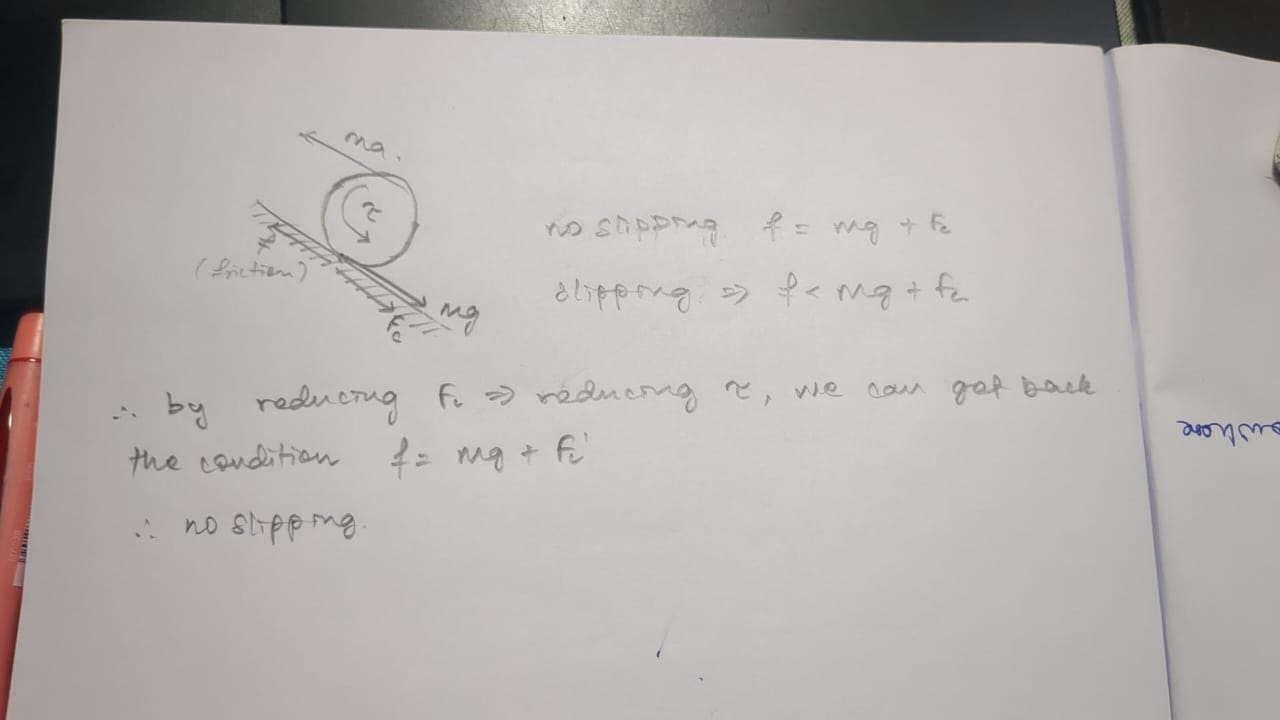 ma.
τ
f
(friction)
mg
Fc
no slipping f = mg + Fc
slipping ⇒ f < mg + Fc
∴ by reducing Fc ⇒ reducing τ, we can get back
the condition f = mg + Fc'
∴ no slipping.